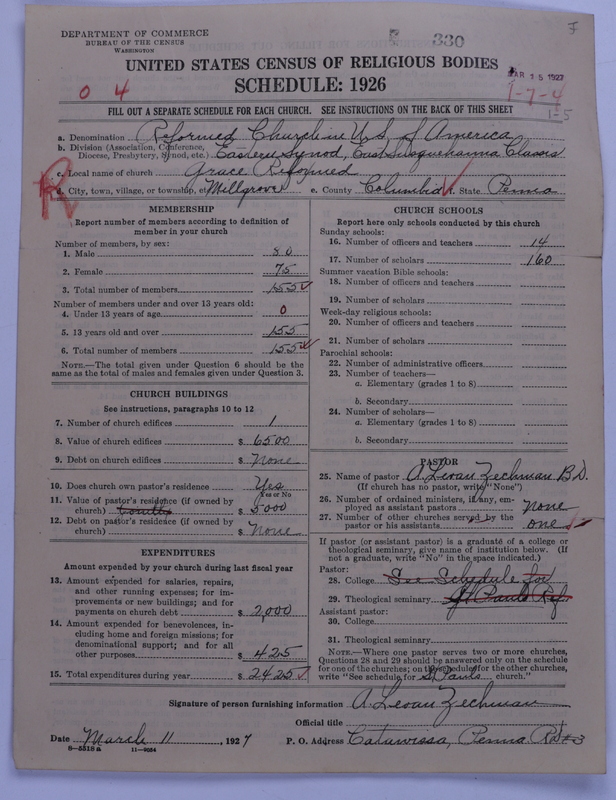 DEPARTMENT OF COMMERCE
BUREAU OF THE CENSUS
WASHINGTON
330
UNITED STATES CENSUS OF RELIGIOUS BODIES
SCHEDULE: 1926
MAR 15 1927
0 4
1-7-4
1-5
FILL OUT A SEPARATE SCHEDULE FOR EACH CHURCH. SEE INSTRUCTIONS ON THE BACK OF THIS SHEET
a. Denomination Reformed Church in U.S. of America
b. Division (Association, Conference, Diocese, Presbytery, Synod, etc.) Eastern Synod, East Susquehanna Classis
c. Local name of church Grace Reformed
d. City, town, village, or township, etc. Millgrove e. County Columbia f. State Penna
R
MEMBERSHIP
Report number of members according to definition of
member in your church
Number of members, by sex:
1. Male 80
2. Female 75
3. Total number of members 155
Number of members under and over 13 years old:
4. Under 13 years of age 0
5. 13 years old and over 155
6. Total number of members 155
NOTE.—The total given under Question 6 should be
the same as the total of males and females given under Question 3.
CHURCH BUILDINGS
See instructions, paragraphs 10 to 12
7. Number of church edifices 1
8. Value of church edifices $ 6500
9. Debt on church edifices $ None
10. Does church own pastor's residence Yes
Yes or No
11. Value of pastor's residence (if owned by
church) $ 5000
12. Debt on pastor's residence (if owned by
church) $ None
EXPENDITURES
Amount expended by your church during last fiscal year
13. Amount expended for salaries, repairs,
and other running expenses; for im-
provements or new buildings; and for
payments on church debt $ 2,000
14. Amount expended for benevolences, in-
cluding home and foreign missions; for
denominational support; and for all
other purposes $ 425
15. Total expenditures during year $ 2425
CHURCH SCHOOLS
Report here only schools conducted by this church
Sunday schools:
16. Number of officers and teachers 14
17. Number of scholars 160
Summer vacation Bible schools:
18. Number of officers and teachers
19. Number of scholars
Week-day religious schools:
20. Number of officers and teachers
21. Number of scholars
Parochial schools:
22. Number of administrative officers
23. Number of teachers—
a. Elementary (grades 1 to 8)
b. Secondary
24. Number of scholars—
a. Elementary (grades 1 to 8)
b. Secondary
PASTOR
25. Name of pastor A. Levan Zechman B.D.
(If church has no pastor, write "None")
26. Number of ordained ministers, if any, em-
ployed as assistant pastors none
27. Number of other churches served by the
pastor or his assistants one
If pastor (or assistant pastor) is a graduate of a college or
theological seminary, give name of institution below. (If
not a graduate, write "No" in the space indicated.)
Pastor:
28. College See Schedule for
29. Theological seminary St Pauls Ref.
Assistant pastor:
30. College
31. Theological seminary
NOTE.—Where one pastor serves two or more churches,
Questions 28 and 29 should be answered only on the schedule
for one of the churches; on the schedules for the other churches,
write "See schedule for St Pauls church."
Signature of person furnishing information A. Levan Zechman
Official title
Date March 11, 1927 P. O. Address Catawissa, Penna
8—5518a 11—9054